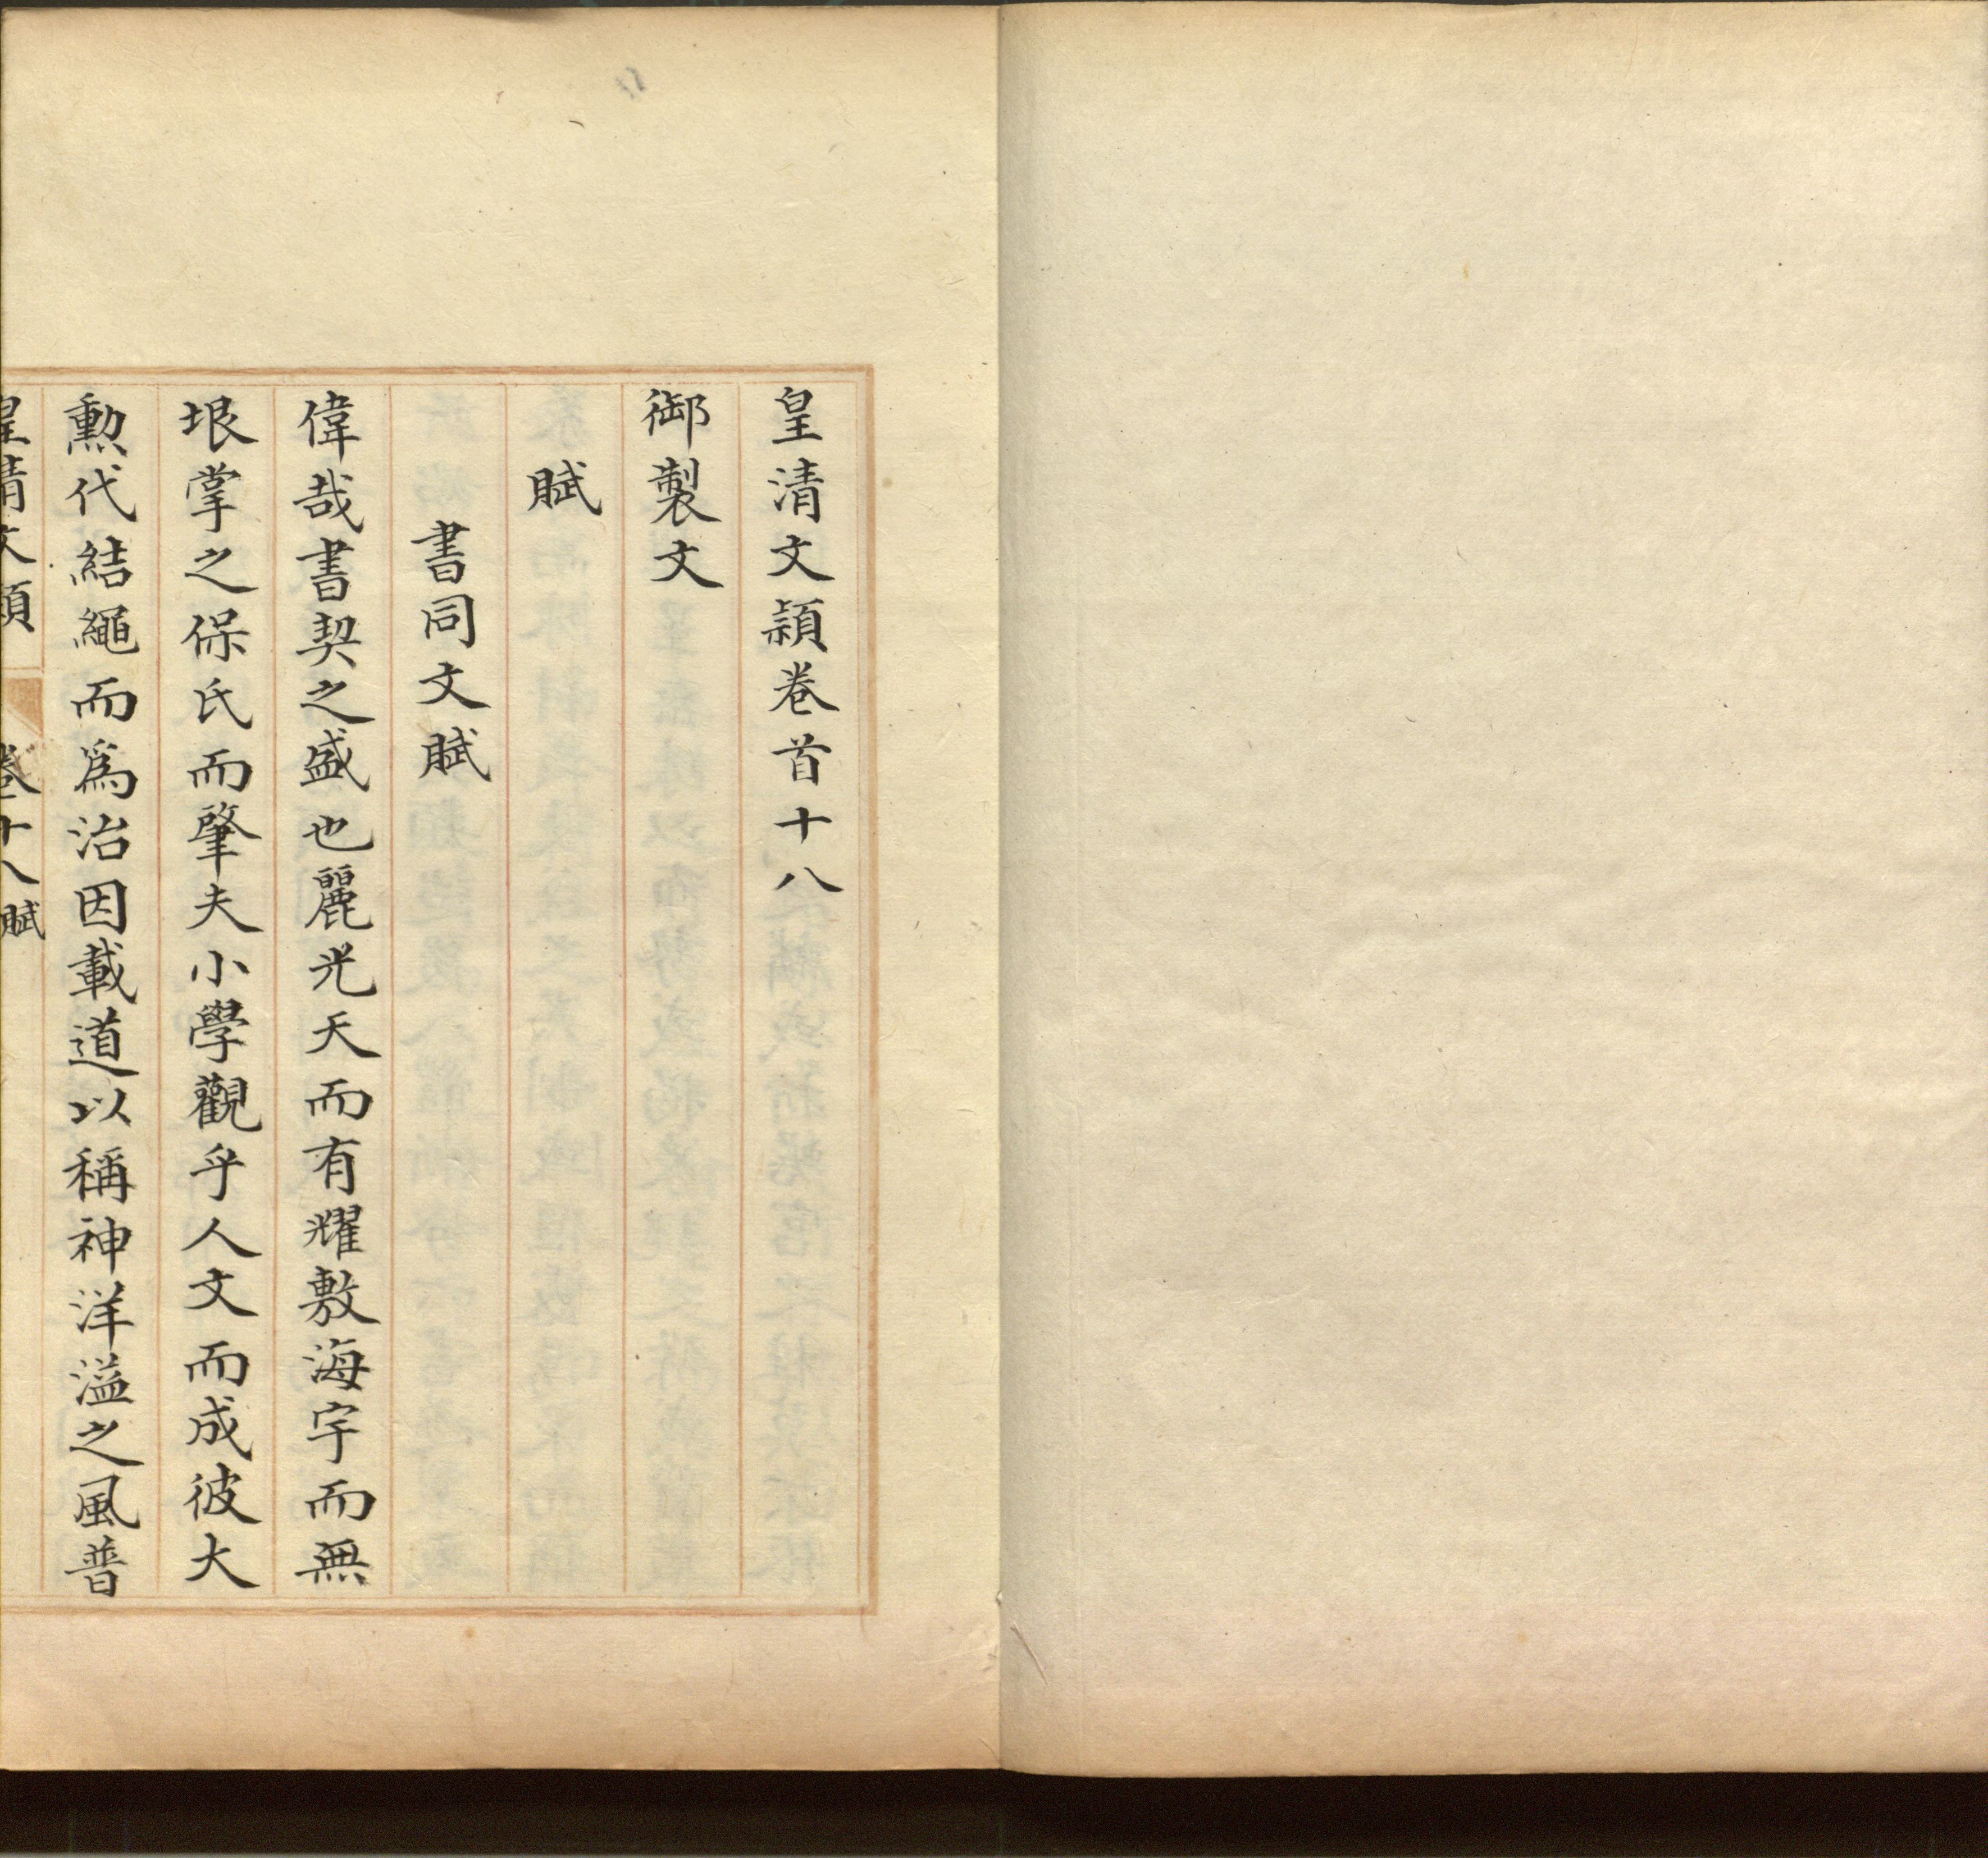 皇清文頴卷首十八
御製文
賦
書同文賦
偉哉書契之盛也麗光天而有耀敷海宇而無
垠掌之保氏而肇夫小學觀乎人文而成彼大
勲代結繩而為治因載道以稱神洋溢之風普
皇清文頴
卷十八賦